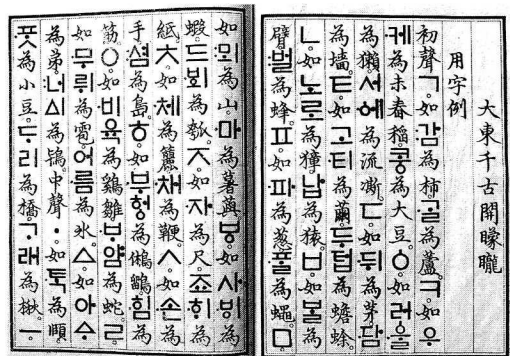 大東千古開矇矓
用字例
初聲ㄱ。如감為柿。ᄀᆞᆯ為蘆。ㅋ。如우
케為未舂稻。코ᇰ為大豆。ㆁ。如러ᅌᅮᆯ
為獺。서ᅌᅦ為流凘。ㄷ。如뒤為茅。담
為墻。ㅌ。如고티為繭。두텁為蟾蜍。
ㄴ。如노로為獐。납為猿。ㅂ。如ᄇᆞᆯ為
臂。벌為蜂。ㅍ。如파為葱。ᄑᆞᆯ為蠅。ㅁ
如뫼為山。마為薯藇。ㅸ。如사ᄫᅵ為
蝦。드ᄫᅴ為瓠。ㅈ。如자為尺。죠ᄒᆡ為
紙。ㅊ。如체為籭。채為鞭。ㅅ。如손為
手。셤為島。ㅎ。如부허ᇰ為鵂鶹。힘為
筋。ㅇ。如비육為鷄雛。ᄇᆞ얌為蛇。ㄹ。
如무뤼為雹。어름為氷。ㅿ。如아ᅀᆞ
為弟。너ᅀᅵ為鴇。中聲ㆍ。如ᄐᆞᆨ為頤。
ᄑᆞᆺ為小豆。ᄃᆞ리為橋。ᄀᆞ래為楸。ㅡ